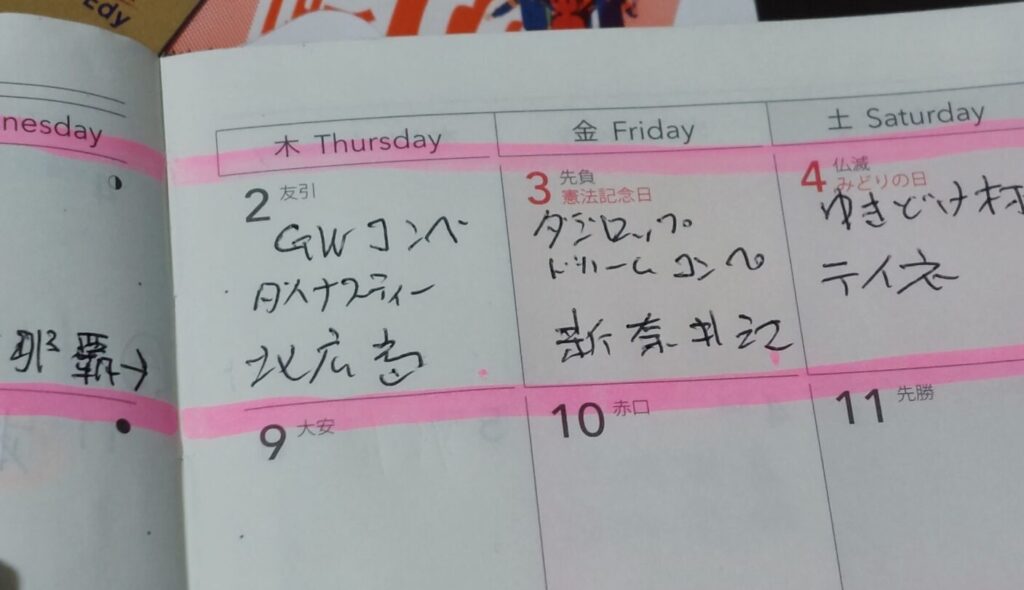 Edy
nesday
木 Thursday
金 Friday
土 Saturday
2 友引
GWコンペ
ダイナスティー
北広島
3 先負
憲法記念日
ダンロップ
ドリームコンペ
新奈井江
4 仏滅
みどりの日
ゆきどけ杯
テイネ
那覇→
9 大安
10 赤口
11 先勝